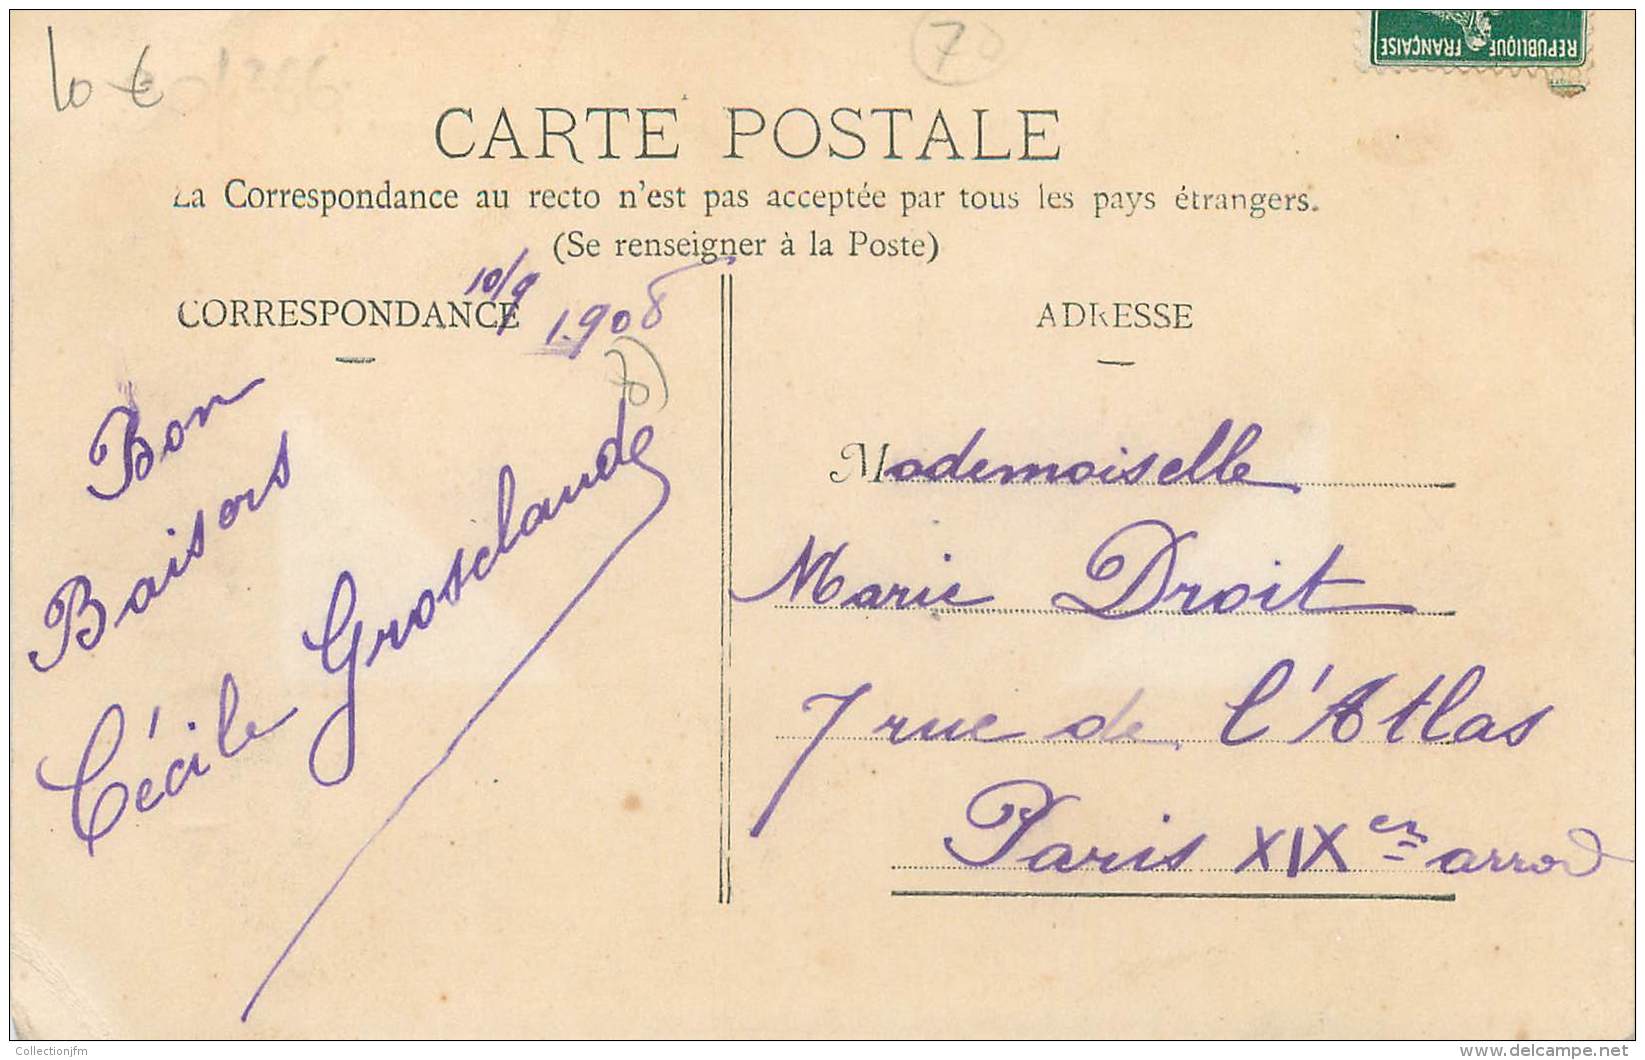 10 €
70
REPUBLIQUE FRANÇAISE
CARTE POSTALE
La Correspondance au recto n'est pas acceptée par tous les pays étrangers.
(Se renseigner à la Poste)
CORRESPONDANCE
10/9 1908
70
Bon
Baisers
Cécile Grosclaude
ADRESSE
Mademoiselle
Marie Droit
7 rue de l'Atlas
Paris XIXem arrod
Collectionjfm
delcampe.net